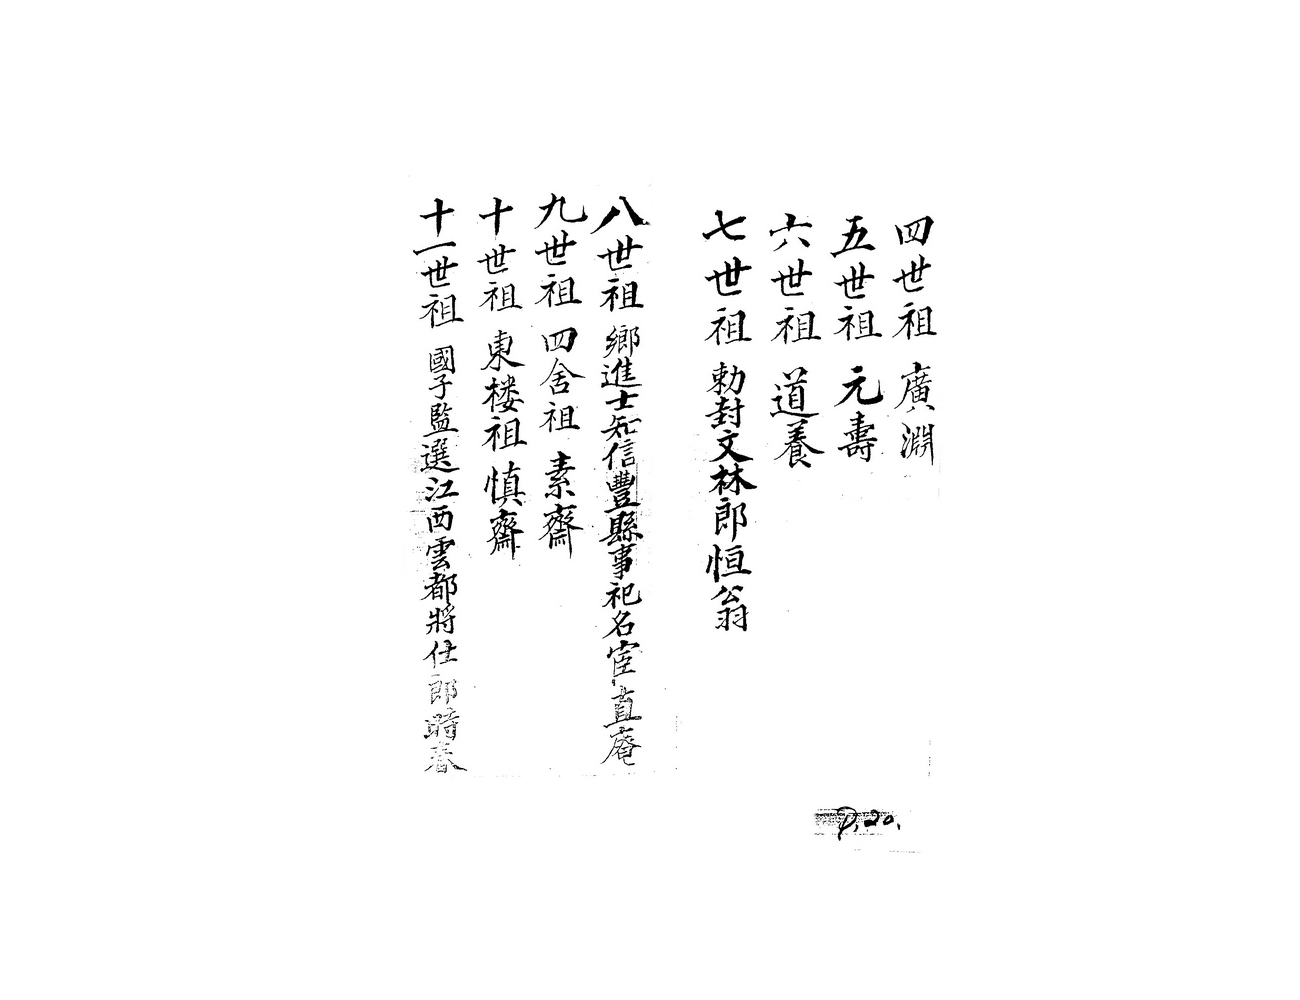 四世祖 廣淵
五世祖 元壽
六世祖 道養
七世祖 勅封文林郎恒翁
八世祖 鄉進士知信豐縣事祀名宦直庵
九世祖 四舍祖 素齋
十世祖 東楼祖 慎齋
十一世祖 國子監選江西雲都將仕郎時春
P.20.